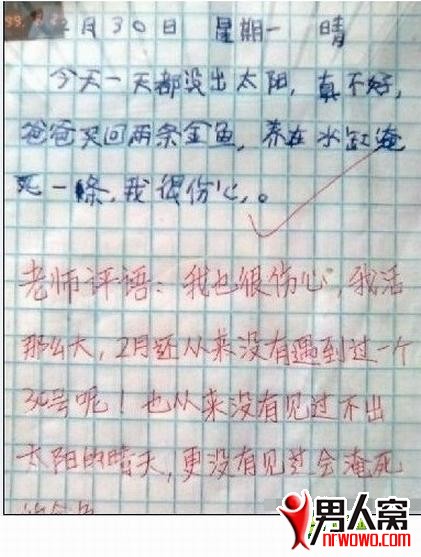 2月30日 星期一 晴
今天一天都没出太阳，真不好，
爸爸买回两条金鱼，养在水缸淹
死一條，我很伤心。
老师评语：我也很伤心，我活
那么大，2月还从来没有遇到过一个
30号呢！也从来没有见过不出
太阳的晴天，更没有见过会淹死
的金鱼
男人窝
nrwowo.com